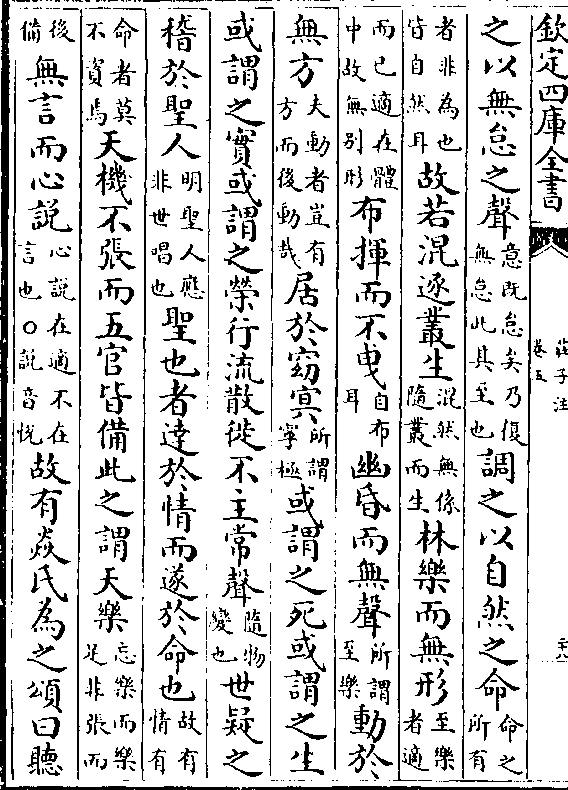 欽定四庫全書
莊子注
卷五
二十八
之以無怠之聲意既怠矣乃復無怠此其至也調之以自然之命命之所有
者非為也皆自然耳故若混逐叢生混然無係隨叢而生林樂而無形至樂者適
而已適在體中故無別形布揮而不曳自布耳幽昏而無聲所謂至樂動於
無方夫動者豈有方而後動哉居於窈冥所謂寧極或謂之死或謂之生
或謂之實或謂之榮行流散徙不主常聲隨物變也世疑之
稽於聖人明聖人應非世唱也聖也者達於情而遂於命也故有情有
命者莫不資焉天機不張而五官皆備此之謂天樂忘樂而樂足非張而
後備無言而心說心說在適不在言也○說音悅故有焱氏為之頌曰聽